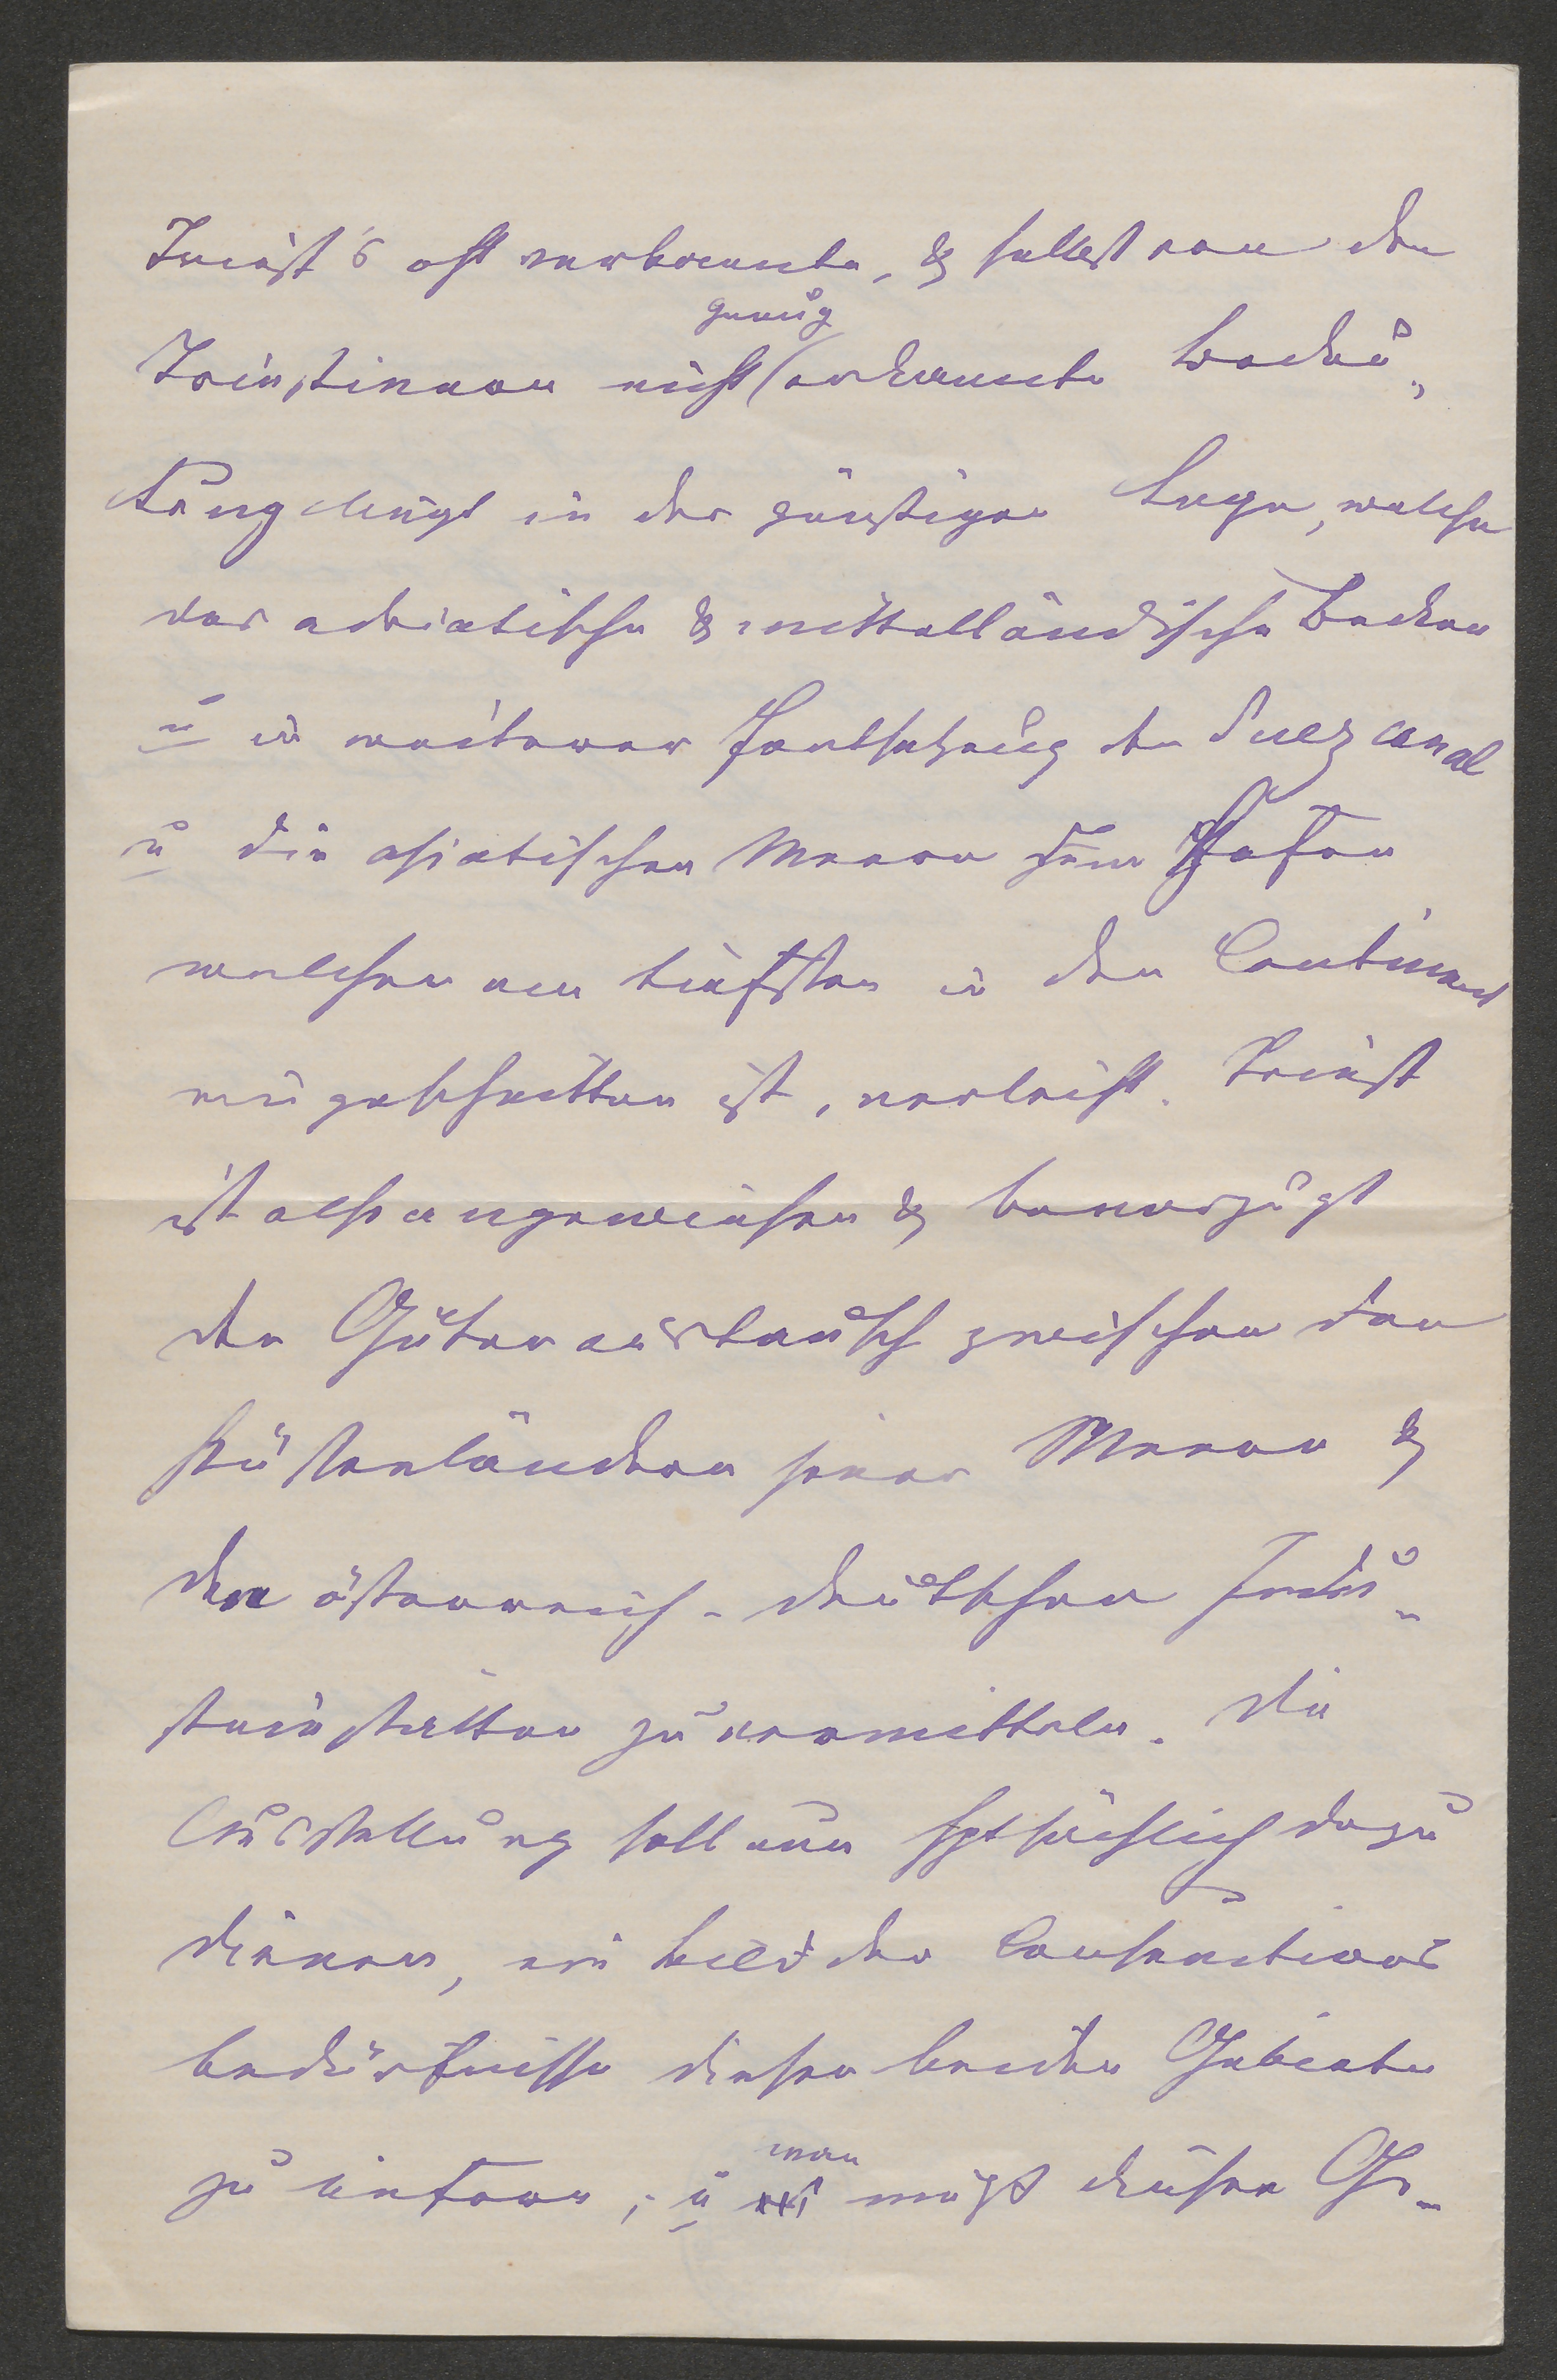 Triest's oft verkannte, & selbst von den
genug
Triestinern nicht (erkannte Bedeu„
tung liegt in der günstigen Lage, welche
das adriatische & mittelländische Becken
u in weiterer Fortsetzung der Suezcanal
u die asiatischen Meere dem Hafen
welcher am tiefsten in den Continent
eingeschnitten ist, verleiht. Triest
ist also angewiesen & bevorzugt
den Güteraustausch zwischen den
Küstenländern jener Meere &
den österreich-deutschen Indu-
striestätten zu vermitteln. Die
Ausstellung soll nun hptsächlich dazu
dienen, ein Bild der Consumtions
bedürfnisse dieser beiden Gebiete
zu liefern; u
man
mißt diesen Ge-